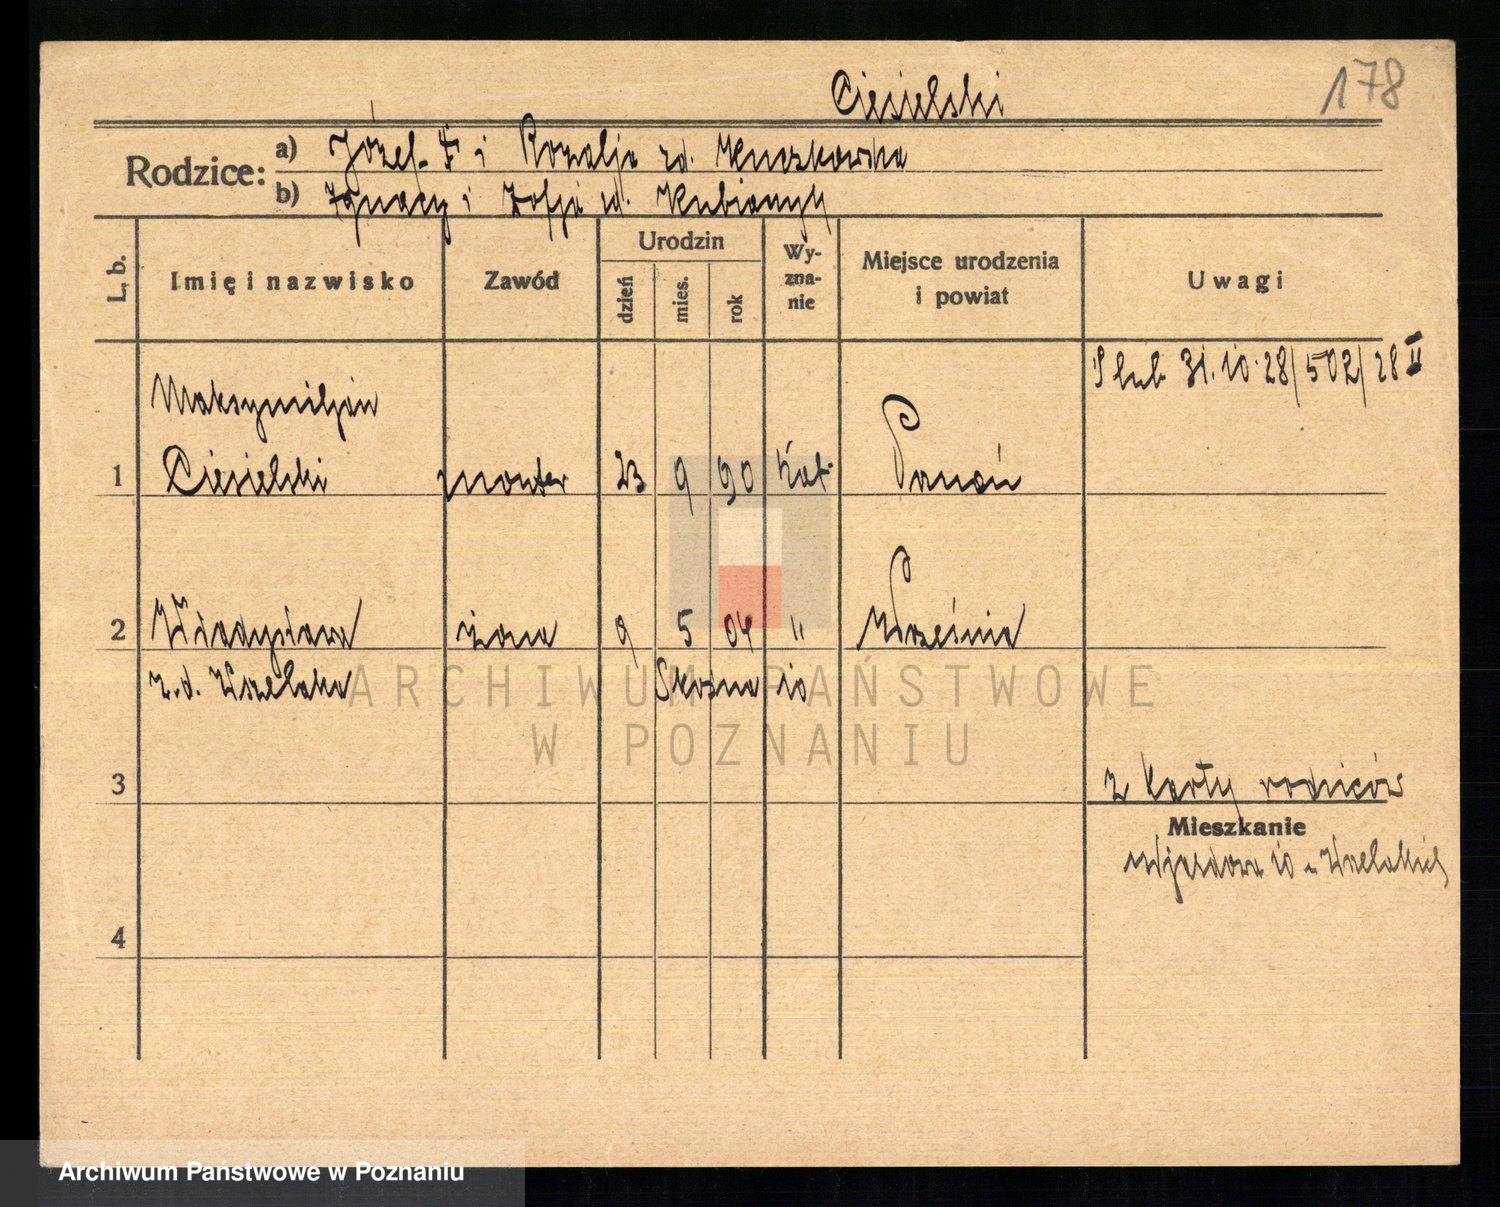 Ciesielski
178
Rodzice: a) Józef i Rozalja zd.
b) Ignacy i Zofja zd. Kubiaczyk
L. b.
Imię i nazwisko
Zawód
Urodzin
dzień
mies.
rok
Wy-
zna-
nie
Miejsce urodzenia
i powiat
Uwagi
Slub 31.10.28/502/28 II
Maksymiljan
1 Ciesielski monter 23 9 90 kat. Poznań
2 Władysława żona 9 5 04 " Września
z.d. Wszelaka 10
ARCHIWUM PAŃSTWOWE
W POZNANIU
3 z karty rodziców
Mieszkanie
10
4
Archiwum Państwowe w Poznaniu